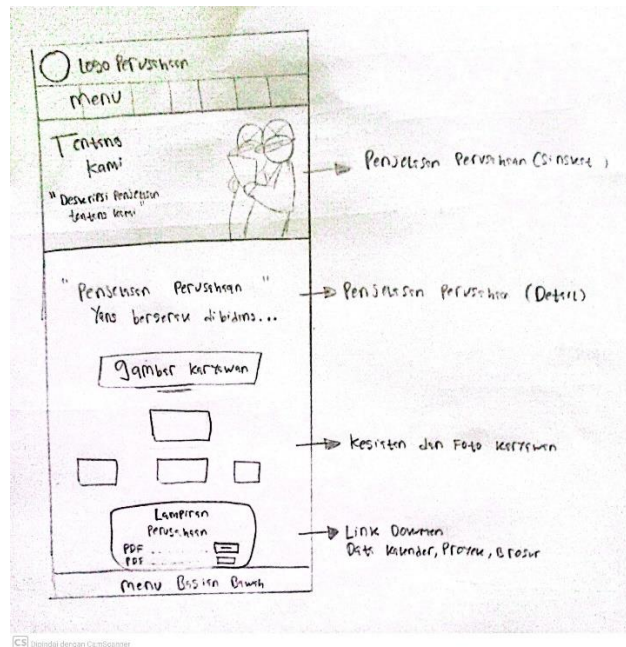 Logo Perusahaan
Menu
Tentang
Kami
"Deskripsi Penjelasan
tentang kami"
Penjelasan Perusahaan (Singkat)
"Penjelasan Perusahaan"
Yang bergerak dibidang...
Penjelasan Perusahaan (Detail)
gambar karyawan
Kegiatan dan Foto Karyawan
Lampiran
Perusahaan
PDF ..........
PDF ..........
Link Dokumen
Data Kalender, Proyek, Brosur
Menu Bagian Bawah
CS Dipindai dengan CamScanner